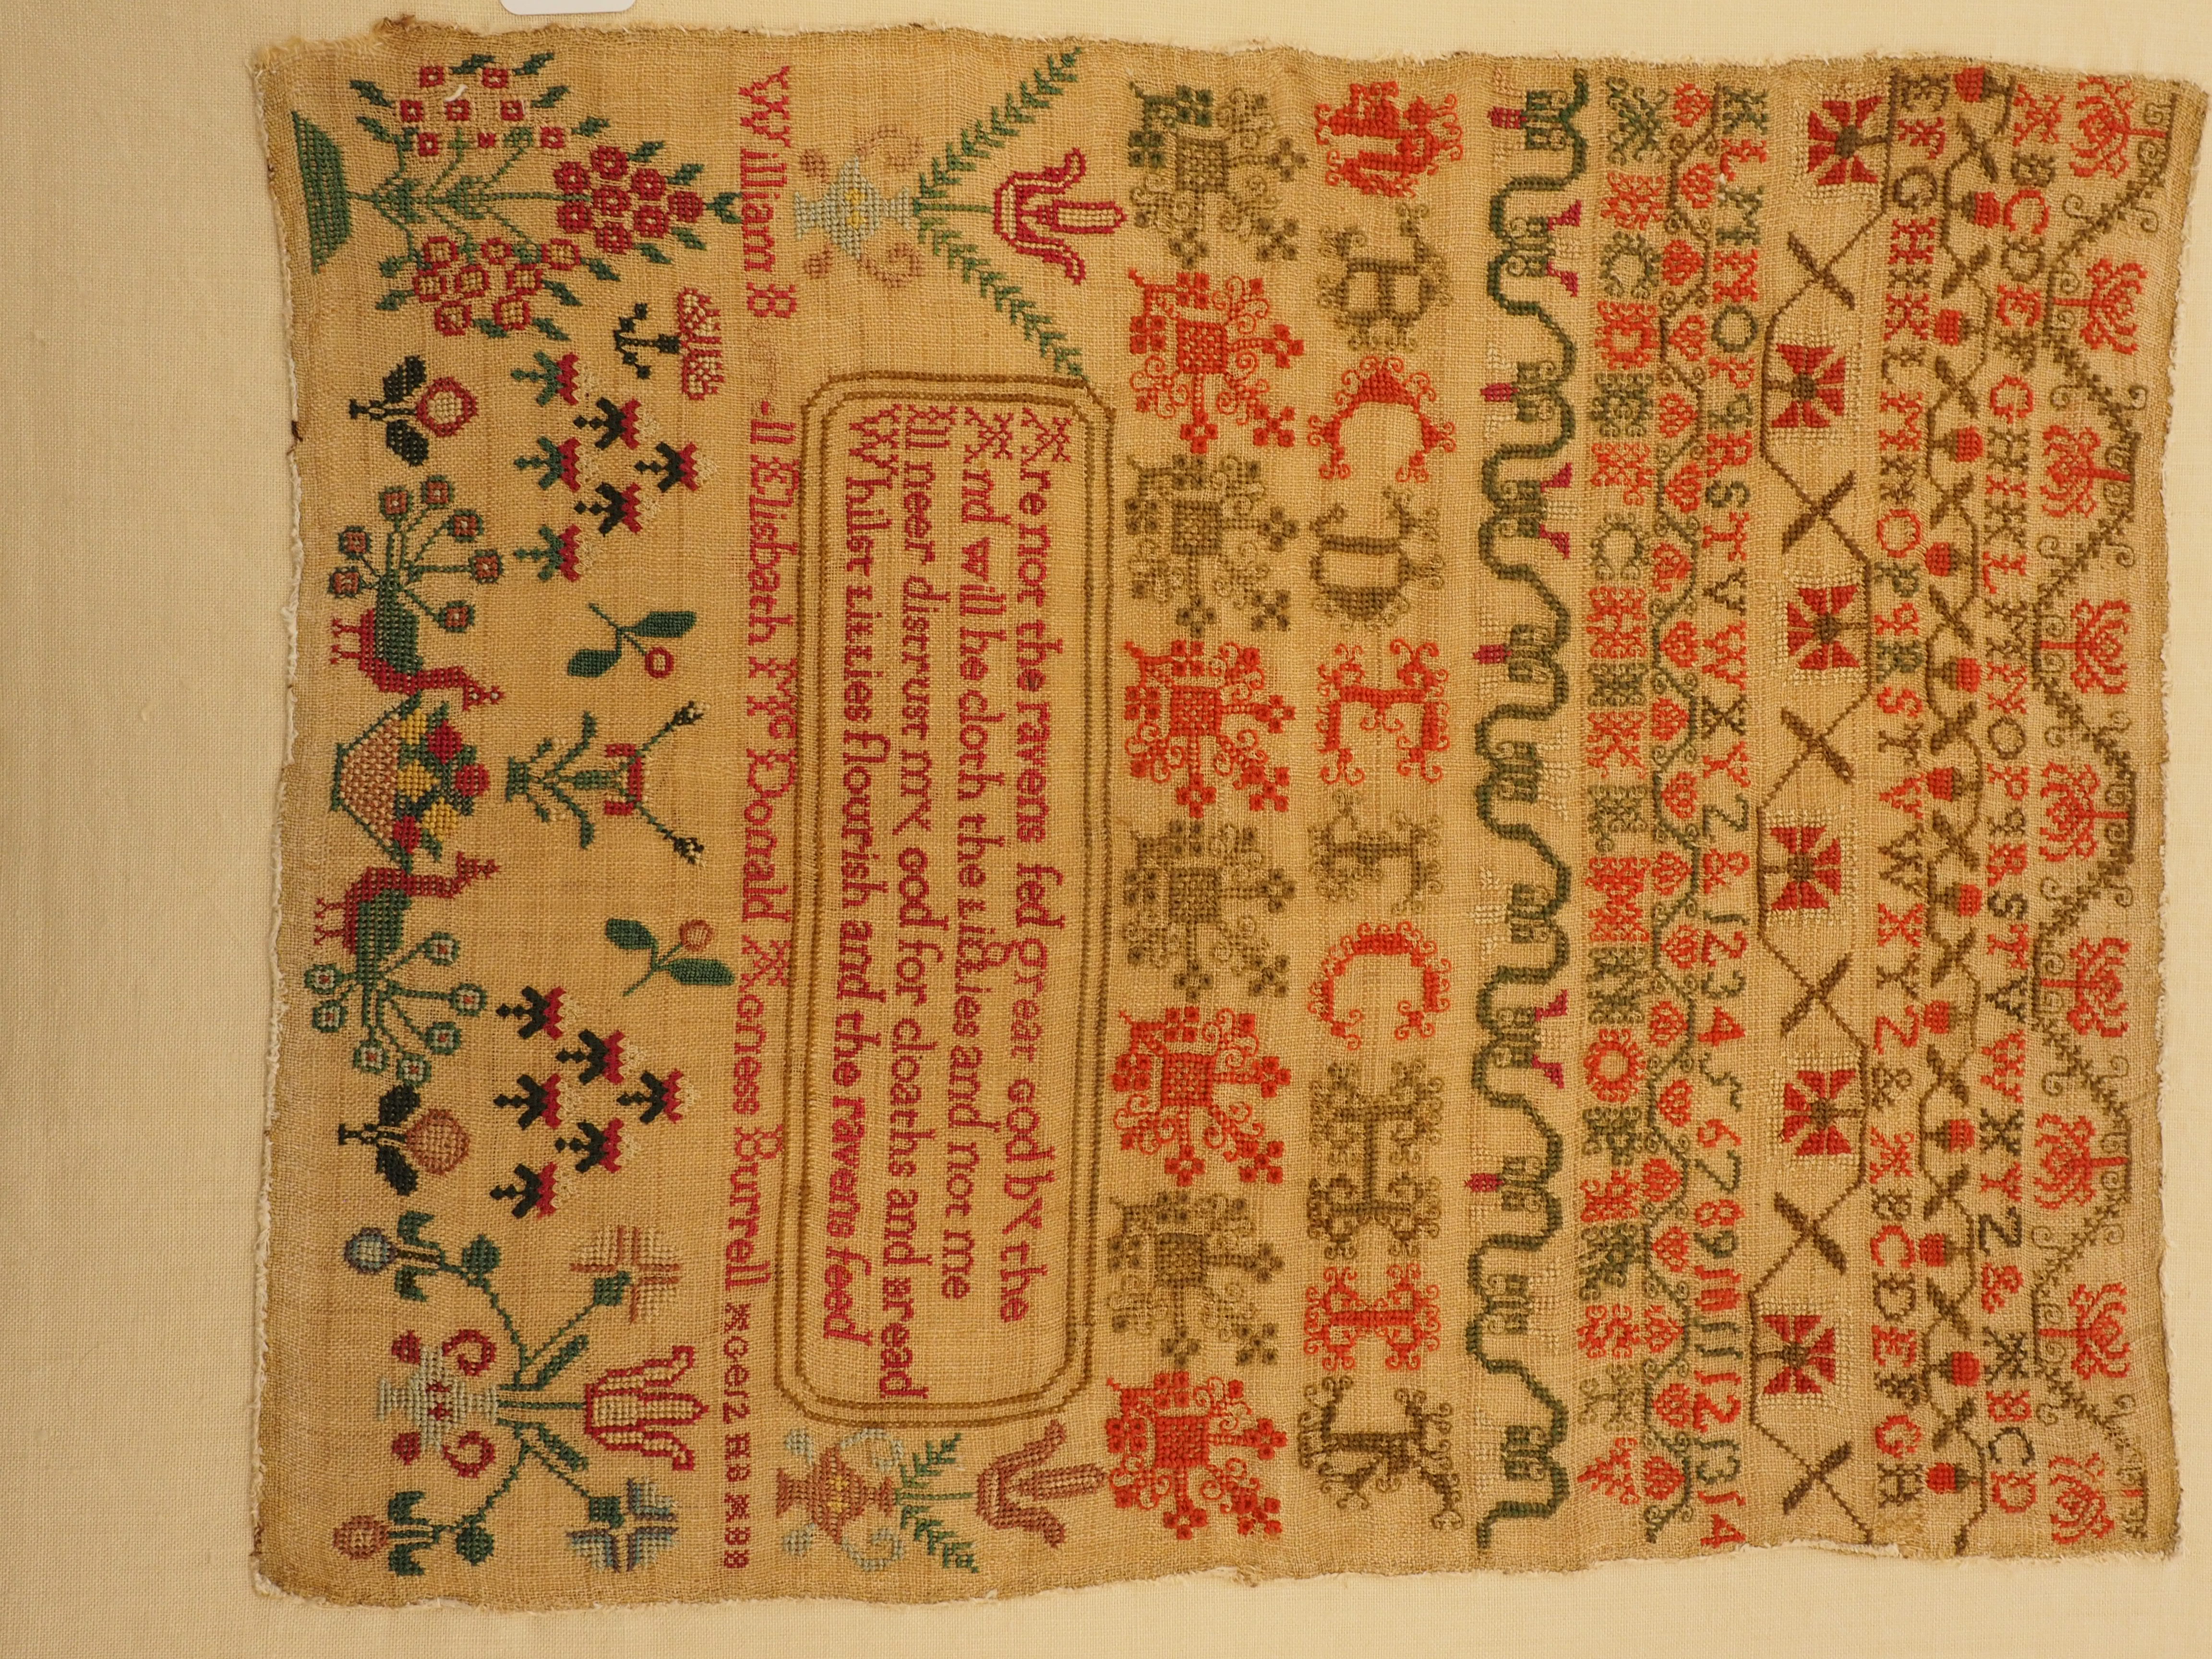 A B C D E F G H I K L M N O P q R S T V W X Y Z & A B C D
E F G H I K L M N O P q R S T V W X Y Z & A B C D E F G H
K L M N O P q R S T V W X Y Z & 1 2 3 4 5 6 7 8 9 10 11 12 13 14
A B C D E F G H I K L M N O P q R S T V
A B C D E F G H I K
Are not the ravens fed great God by the
And will he cloth the Lillies and not me
Ill neer distrust my God for cloaths and Bread
Whilst Lillies flourish and the ravens feed
William B ll Elisbath McDonald Agness Burrell